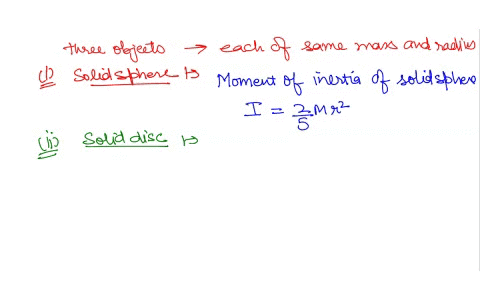 three objects → each of same mass and radius
(i) Solid sphere ↦ Moment of inertia of solid sphere
I = 2/5 Mr²
(ii) Solid disc ↦